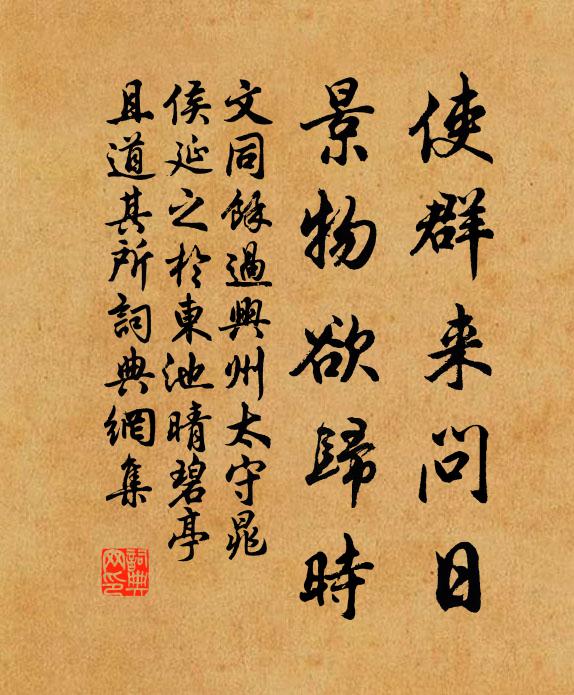 使群来问日
景物欲歸時
文同餘過興州太守晁
侯延之於東池晴碧亭
且道其所詞典網集
詞典
网印